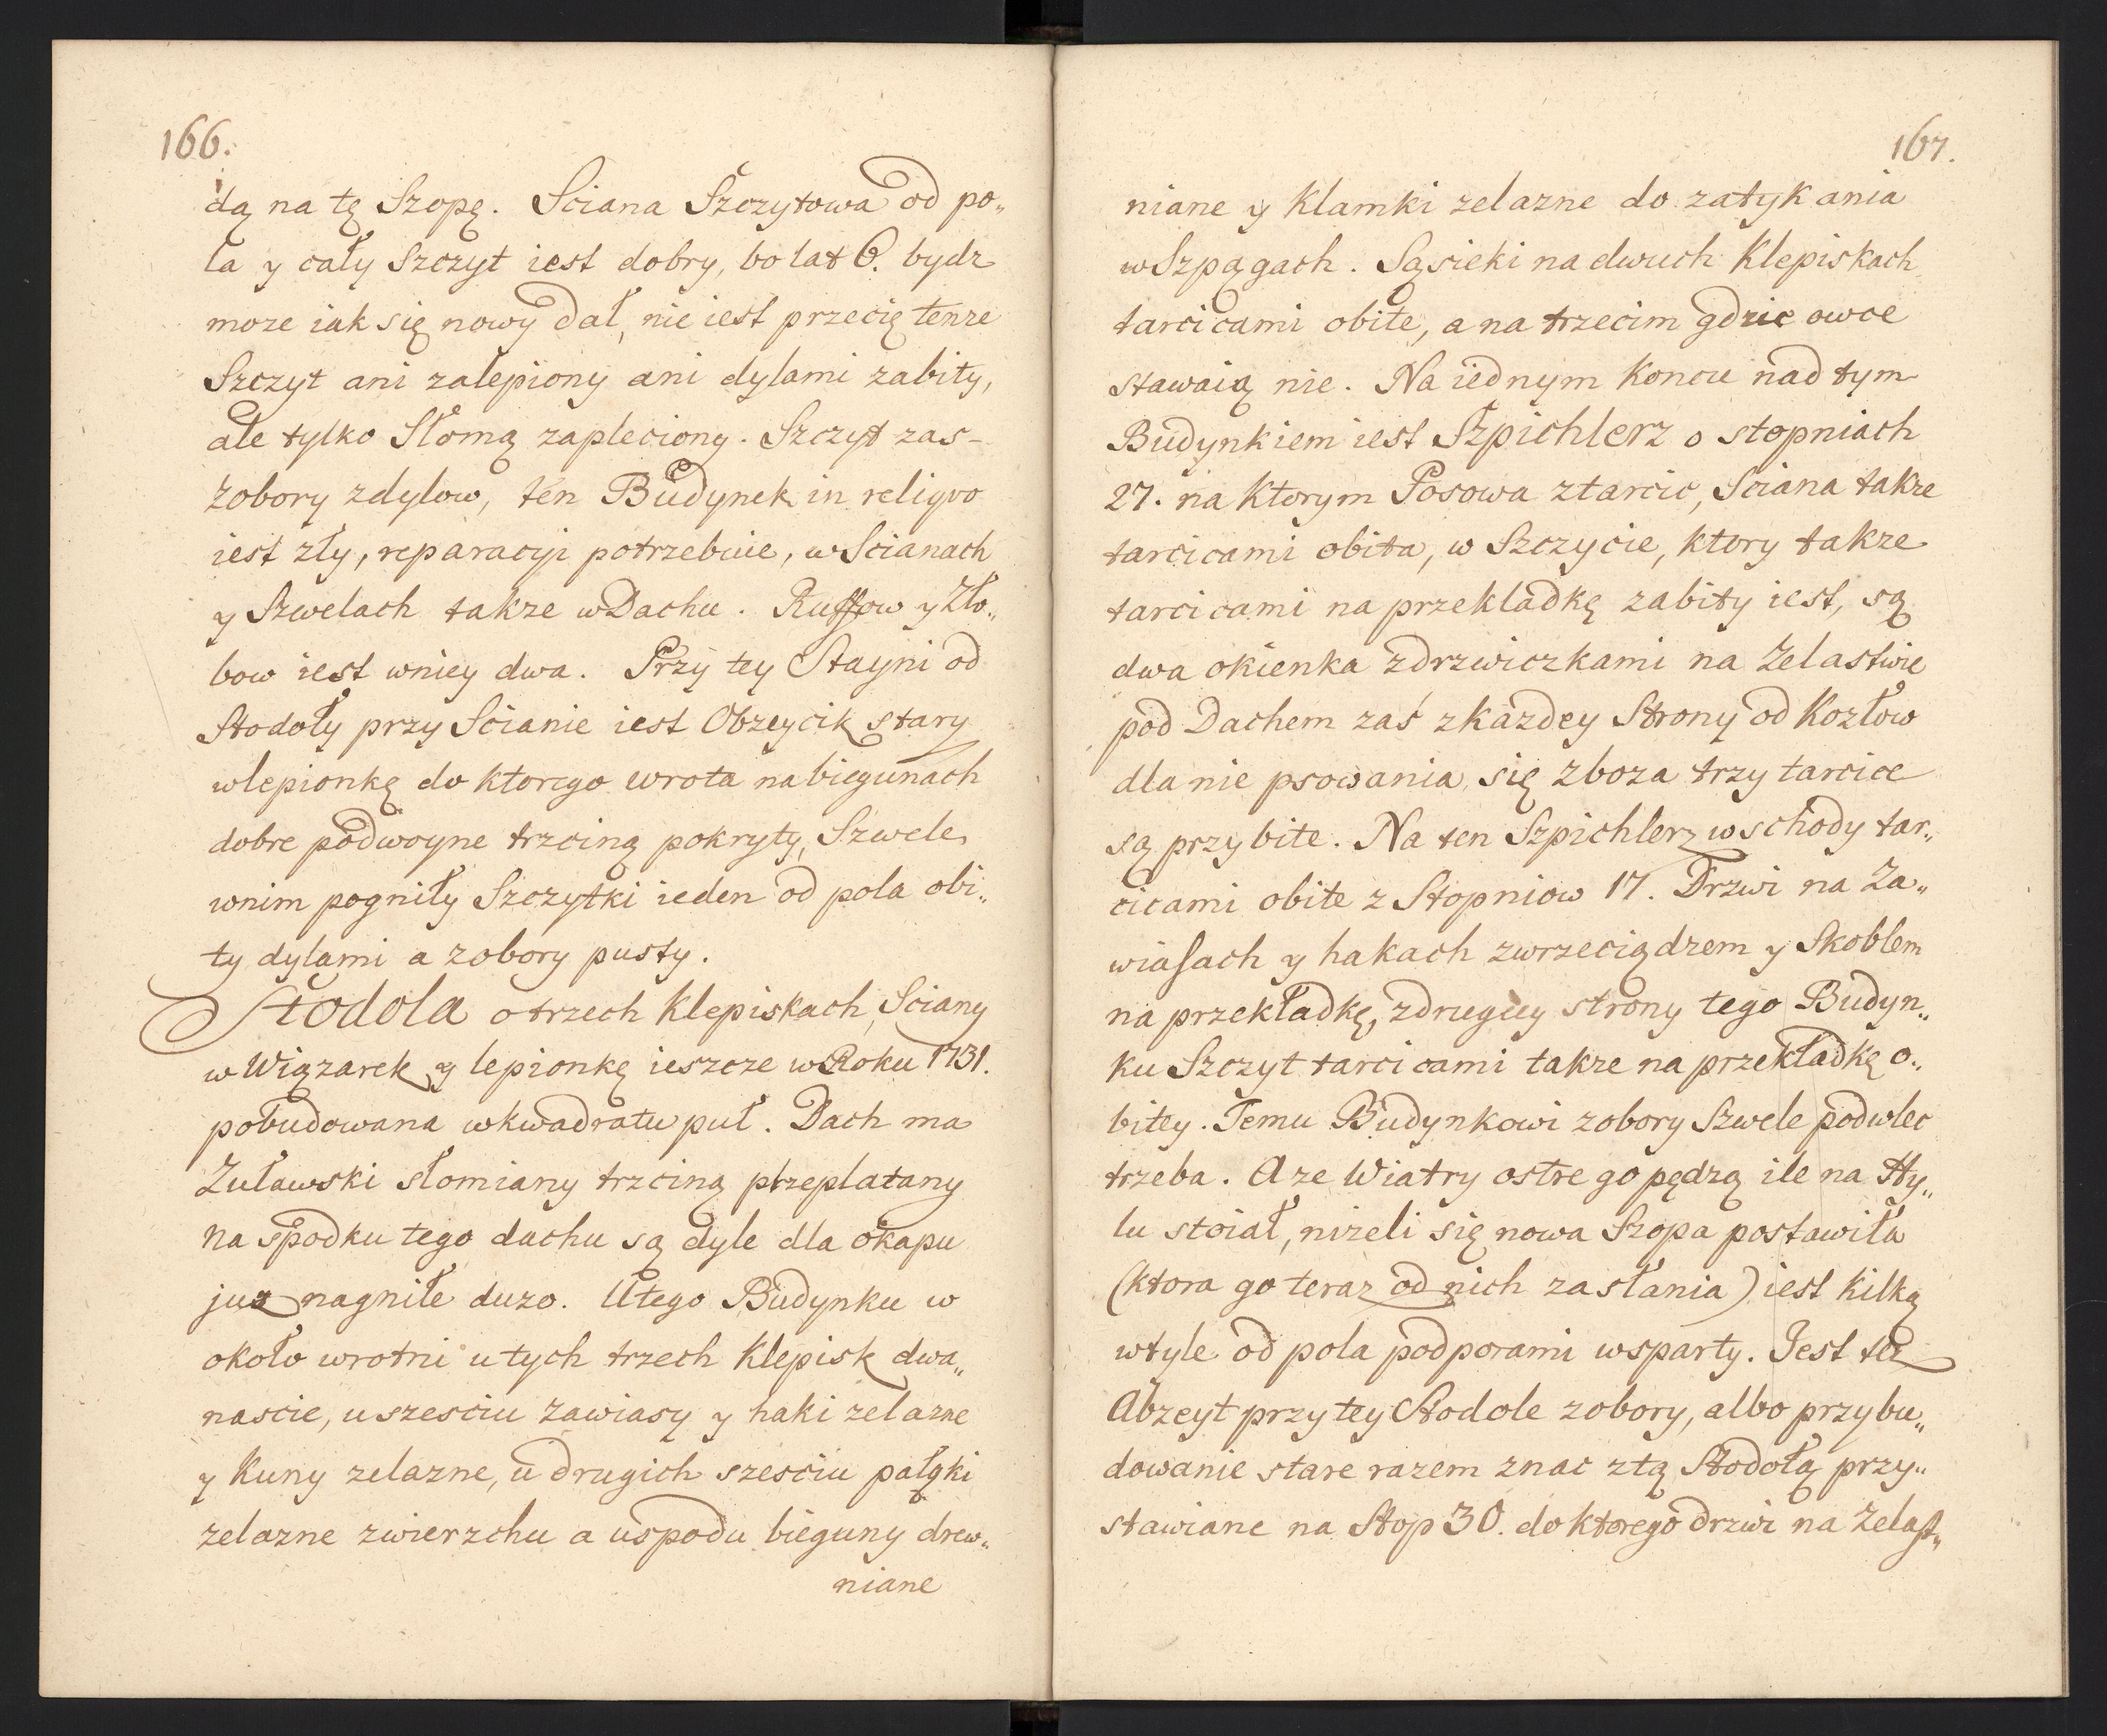 166.
dą na tę Szopę. Sciana Szczytowa od po„
la y cały Szczyt iest dobry, bo lat 6. bydz
moze iak się nowy dał, nie iest przecię tenze
Szczyt ani zalepiony ani dylami zabity,
ale tylko Słomą zapleciony. Szczyt zas
zobory zdylow, ten Budynek in reliqvo
iest zły, reparacyi potrzebuie, w Scianach
y Szwelach takze w Dachu. Ruffow y Zło„
bow iest wniey dwa. Przy tey Stayni od
Stodoły przy Scianie iest Obzeycik stary
wlepionkę do ktorego wrota na biegunach
dobre podwoyne trzciną pokryty, Szwele
wnim pogniły Szczytki ieden od pola obi„
ty dylami a zobory pusty.
Stodola o trzech Klepiskach, Sciany
w Wiązarek y lepionkę ieszcze w Roku 1731.
pobudowana wkwadratu puł. Dach ma
Zuławski słomiany trzciną przeplatany
na spodku tego dachu są dyle dla okapu
juz nagniłe duzo. U tego Budynku w
około wrotni u tych trzech Klepisk dwa„
nascie, u szesciu zawiasy y haki zelazne
y Kuny zelazne, u drugich szesciu pałąki
zelazne zwierzchu a uspodu bieguny drew„
niane
167.
niane y Klamki zelazne do zatykania
w Szpągach. Sąsieki na dwuch Klepiskach
tarcicami obite, a na trzecim gdzie owce
stawaią nie. Na iednym Koncu nad tym
Budynkiem iest Szpichlerz o stopniach
27. na Ktorym Posowa ztarcic, Sciana takze
tarcicami obita, w Szczycie, ktory takze
tarcicami na przekladkę zabity iest, są
dwa okienka zdrzwiczkami na Zelastwie
pod Dachem zaś zkazdey Strony od Kozłow
dla nie psowania się zboza trzy tarcice
są przybite. Na ten Szpichlerz wschody tar„
cicami obite z Stopniow 17. Drzwi na Za„
wiasach y hakach zwrzeciądzem y Skoblem
na przekładkę, zdrugiey strony tego Budyn„
ku Szczyt tarcicami takze na przekładkę o„
bitey. Temu Budynkowi zobory Szwele podwlec
trzeba. A ze Wiatry ostre go pędzą ile na Ty„
lu stoiał, nizeli się nowa Szopa postawiła
(ktora go teraz od nich zasłania) iest Kilką
wtyle od pola podporami wsparty. Jest tez
Abzeyt przy tey Stodole zobory, albo przybu„
dowanie stare razem znac ztą Stodołą przy„
stawiane na Stop 30. do ktorego drzwi na Zelast„